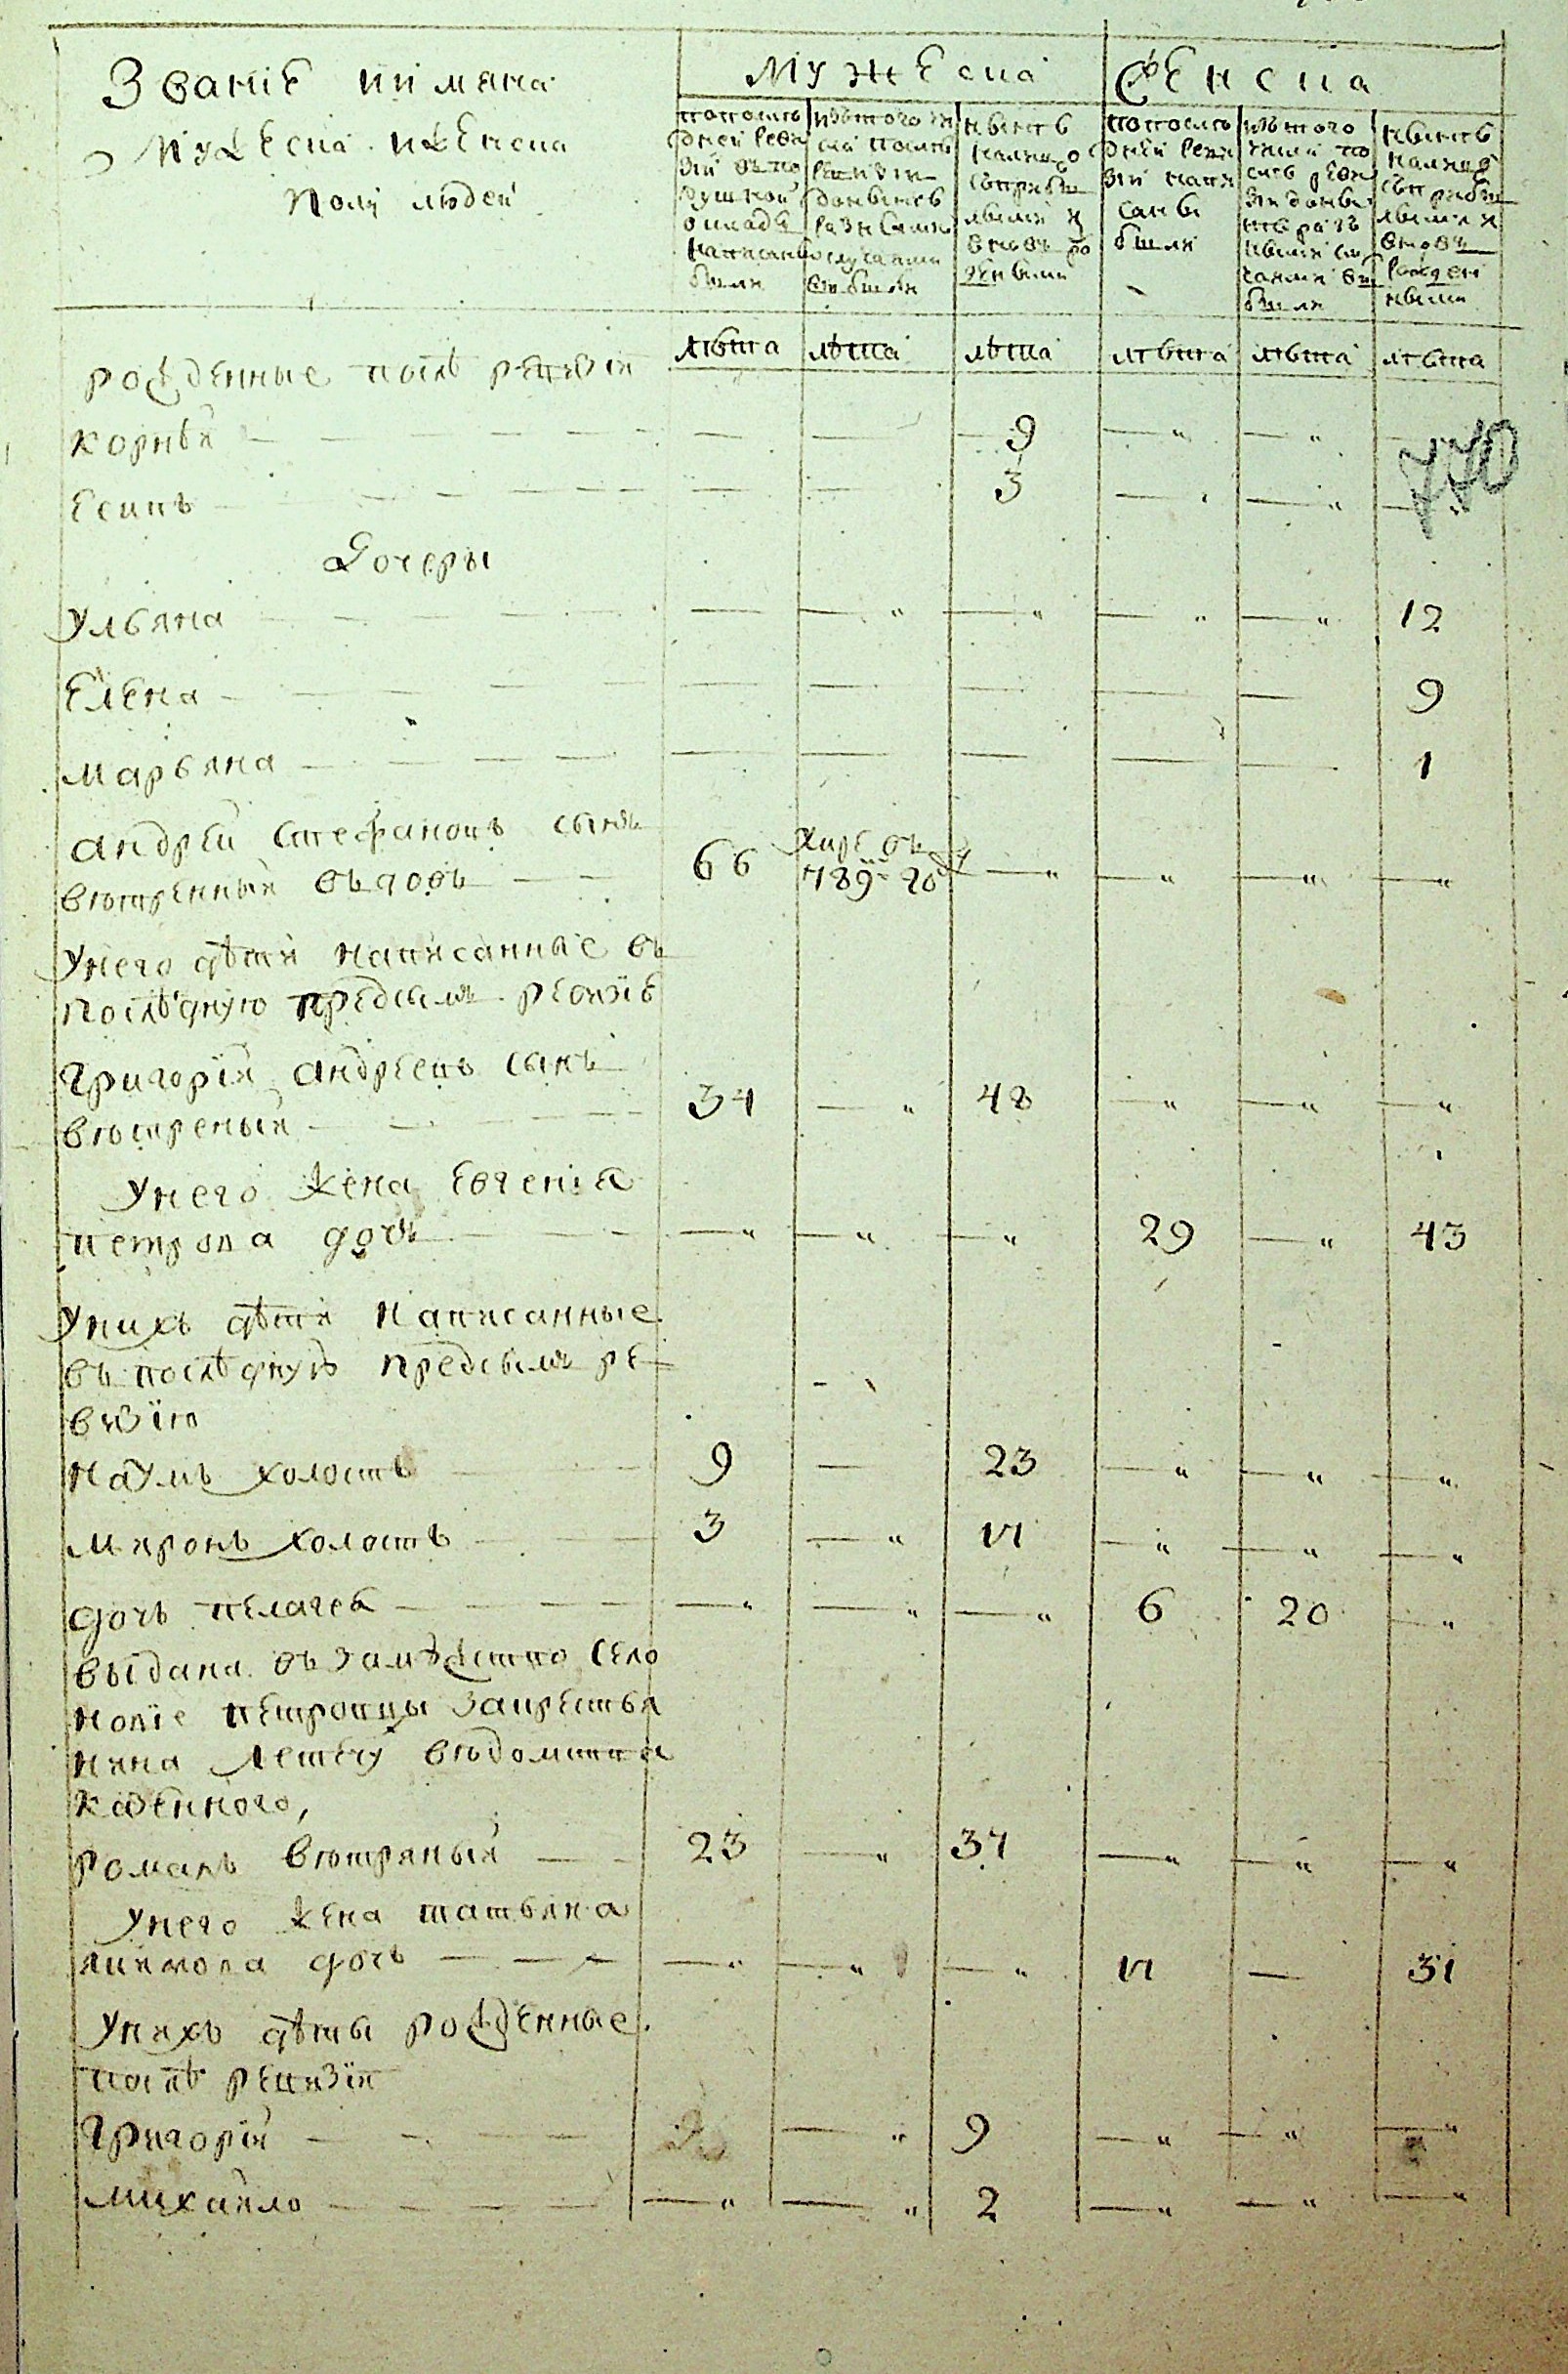 Званіе и имяна
Мужеска и женска
полу людей
Мужеска
Женска
по послѣ
дней реви
зіи въ по
душной
окладъ
написаны
были
изъ того чи
сла послѣ
ревизіи
до нынѣ
разными
случаями
выбыли
нынѣ
на лицо
съ прибы
лыми и
вновь ро
жденными
по послѣ
дней реви
зіи напи
саны
были
изъ того
числа по
слѣ реви
зіи до ны
нѣ раз
ными слу
чаями вы
были
нынѣ
на лицо
съ прибы
лыми и
вновь
рожден
ными
лѣта лѣта лѣта лѣта лѣта лѣта
рожденные послѣ ревизіи
Корнѣй — — 9 — „ — „ —
770
Есипъ — — 3 — „ — „ — „
Дочеры
Ульяна — — „ — „ — „ — „ 12
Елена — — — — — 9
Марьяна — — — — — 1
Андрей Стефановъ сынъ
Вютренный вдовъ — 66 умре въ — „ — „ — „ — „
789 го
У него дѣти написанные въ
послѣдную предъ симъ ревизіе
Григорій Андреевъ сынъ
Вютреный — 34 — „ 48 — „ — „ — „
У него жена Евгенія
Петрова дочь — „ — „ — „ 29 — „ 43
У нихъ дѣти написанные
въ послѣдную предъ симъ ре
визію
Наумъ холостъ 9 — 23 — „ — „ — „
Миронъ холостъ 3 — „ 17 — „ — „ — „
дочь Пелагея — „ — „ — „ 6 20 — „
выдана въ замужство село
Новіе Петровцы за крестья
нина вѣдомства
казенного,
Романъ Вютряный — 23 — „ 37 — „ — „ — „
У него жена Татьяна
Якимова дочь — „ — „ — „ 17 — 31
У нихъ дѣты рожденные
послѣ ревизіи
Григорій — „ 9 — „ — „ — „
Михайло — „ — „ 2 — „ — „ — „